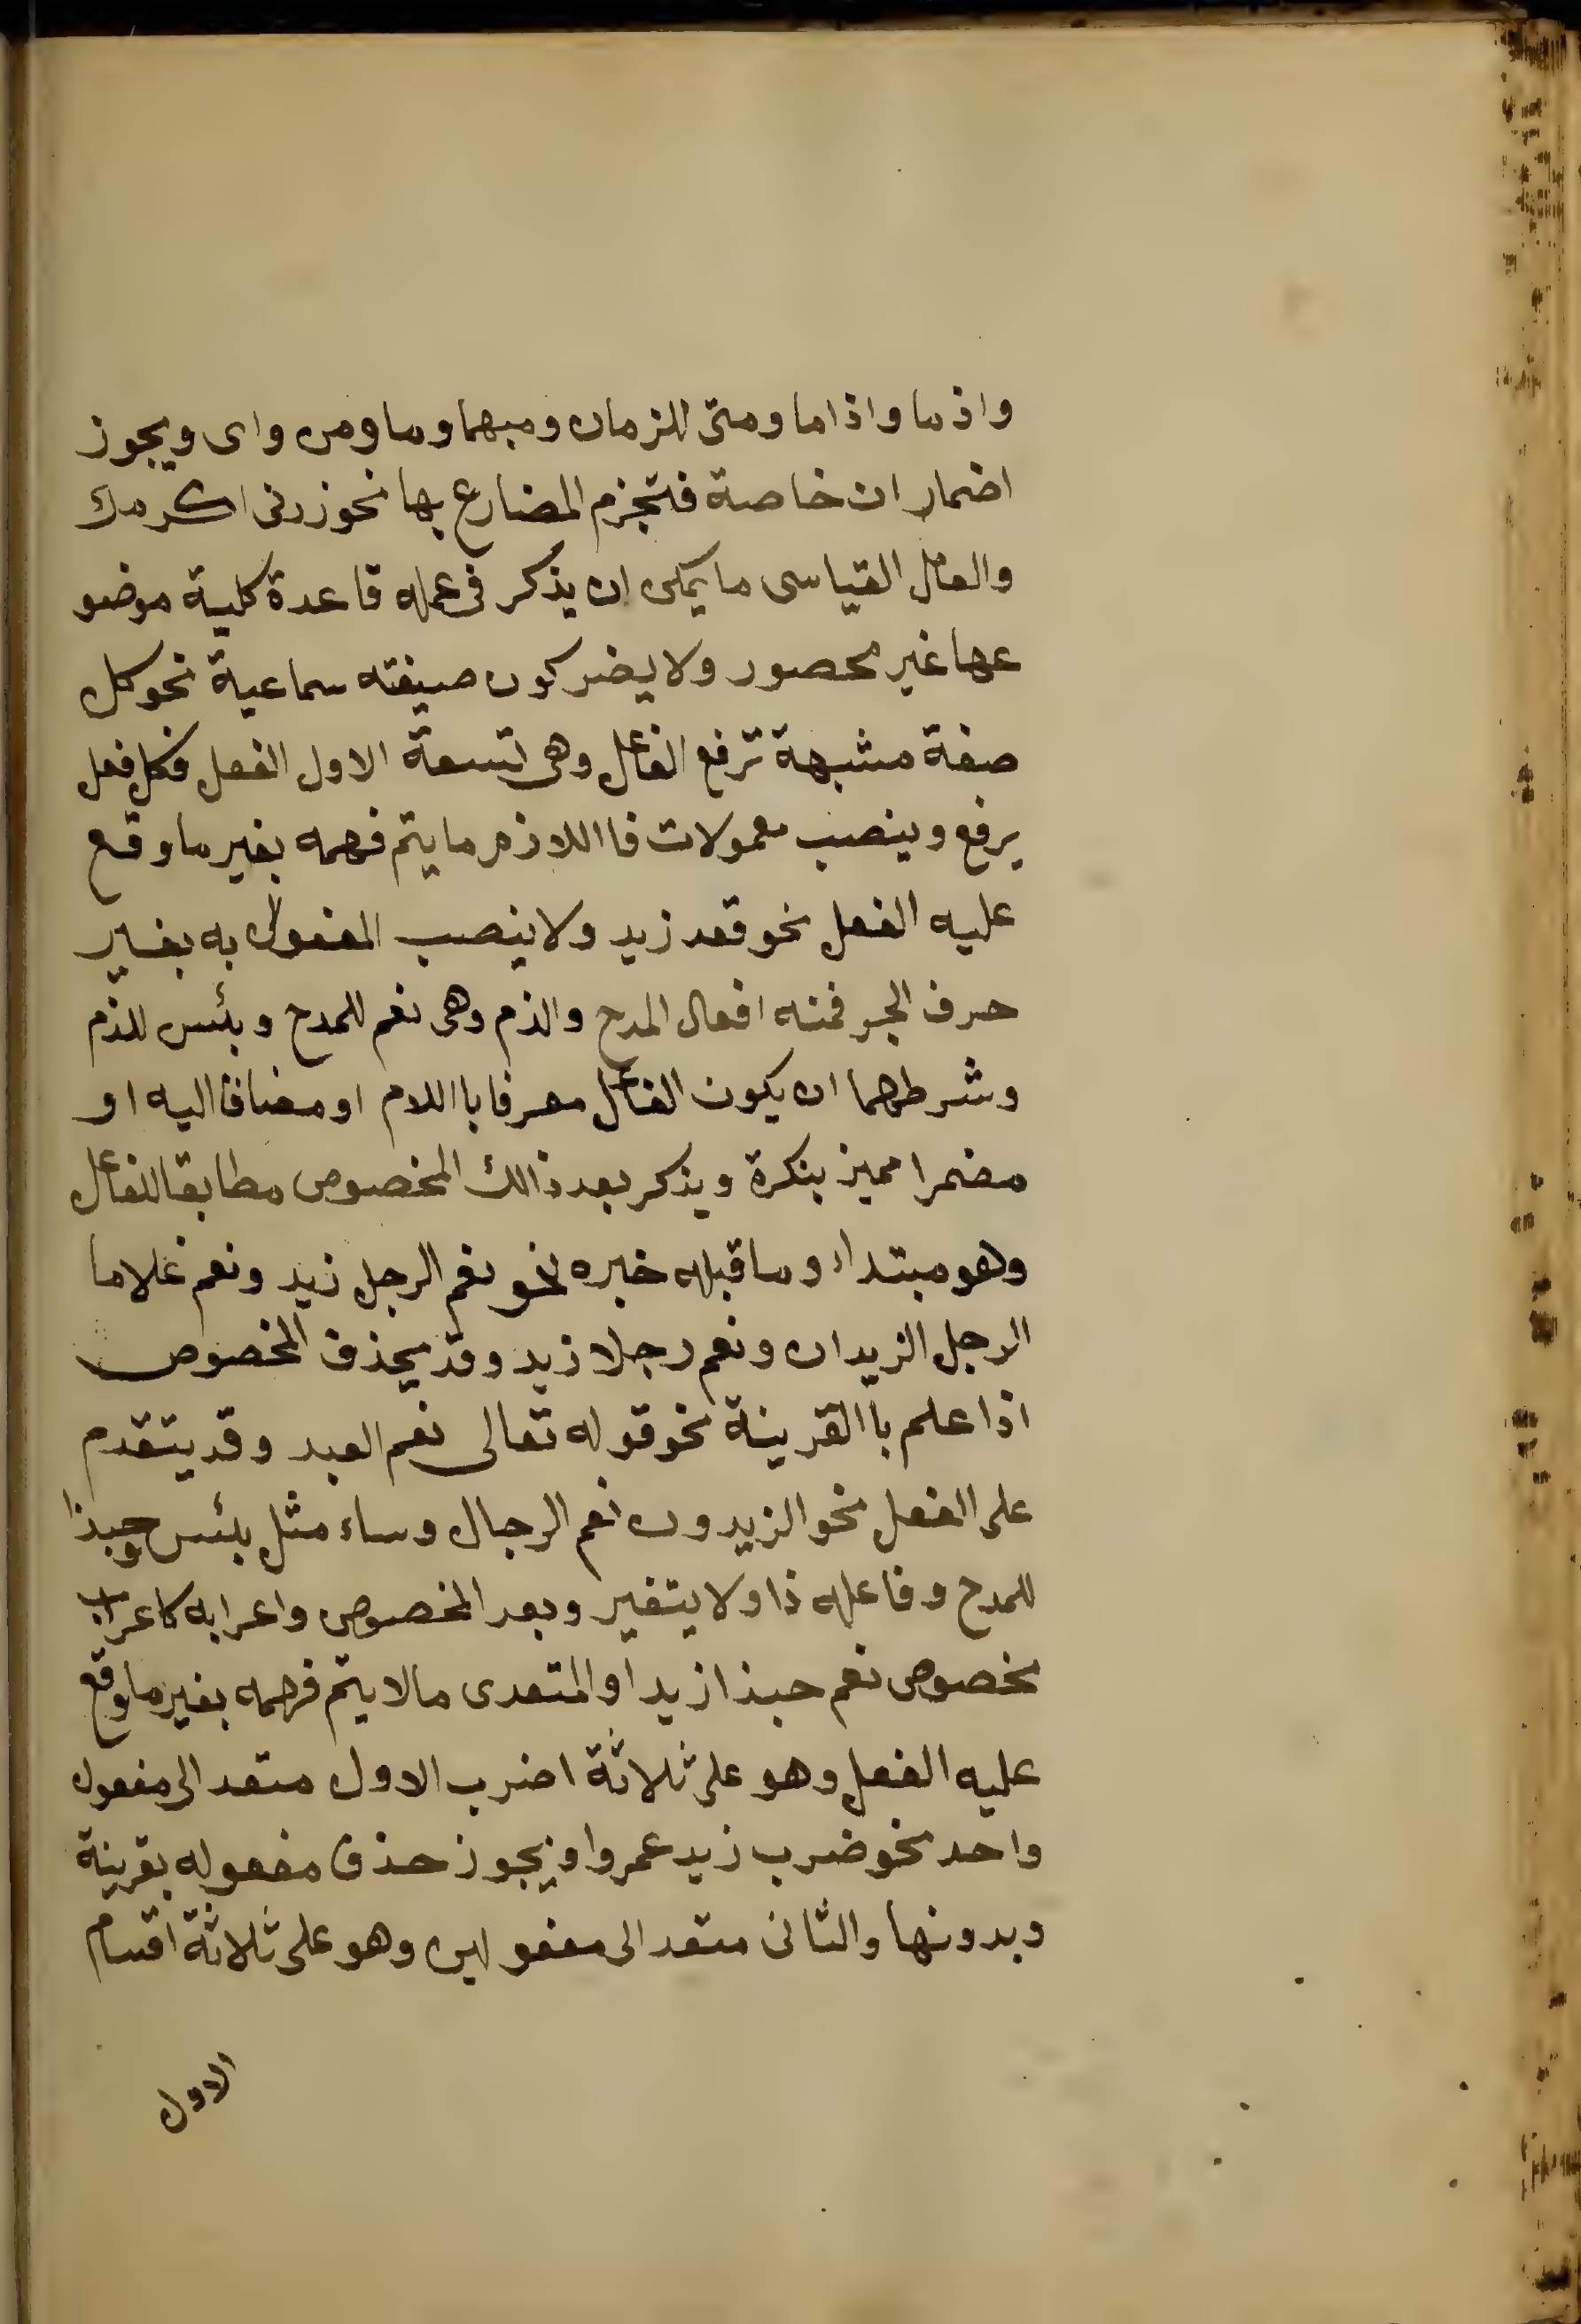 واذ ما واذ اما ومتى للزمان ومهما وما ومن واى ويجوز
اضمار ان خاصة فتجزم المضارع بها نحو زرنى اكرمك
والعامل القياسى ما يمكن ان يذكر فى عمله قاعدة كلية موضو
عها غير محصور ولا يضر كون صيغته سماعية نحو كل
صفة مشبهة ترفع الفاعل وهى تسعة الاول الفعل فكل فعل
يرفع وينصب معمولات فااللازم ما يتم فهمه بغير ما وقع
عليه الفعل نحو قعد زيد ولا ينصب المفعول به بغير
حرف الجر فمنه افعال المدح والذم وهى نعم للمدح وبئس للذم
وشرطهما ان يكون الفاعل معرفا باللام او مضافا اليه او
مضمرا مميز بنكرة ويذكر بعد ذالك المخصوص مطابقا للفاعل
وهو مبتداء وما قبله خبره نحو نعم الرجل زيد ونعم غلاما
الرجل الزيدان ونعم رجلا زيد وقد يحذف المخصوص
اذا علم باالقرينة نحو قوله تعالى نعم العبد وقد يتقدم
على الفعل نحو الزيدون نعم الرجال وساء مثل بئس وحبذا
للمدح وفاعله ذا ولا يتغير وبعد المخصوص واعرابه كاعراب
مخصوص نعم حبذا زيد او المتعدى مالا يتم فهمه بغير ما وقع
عليه الفعل وهو على ثلاثة اضرب الاول متعد الى مفعول
واحد نحو ضرب زيد عمروا ويجوز حذف مفعوله بقرينة
وبدونها والثانى متعد الى مفعولين وهو على ثلاثة اقسام
الاول